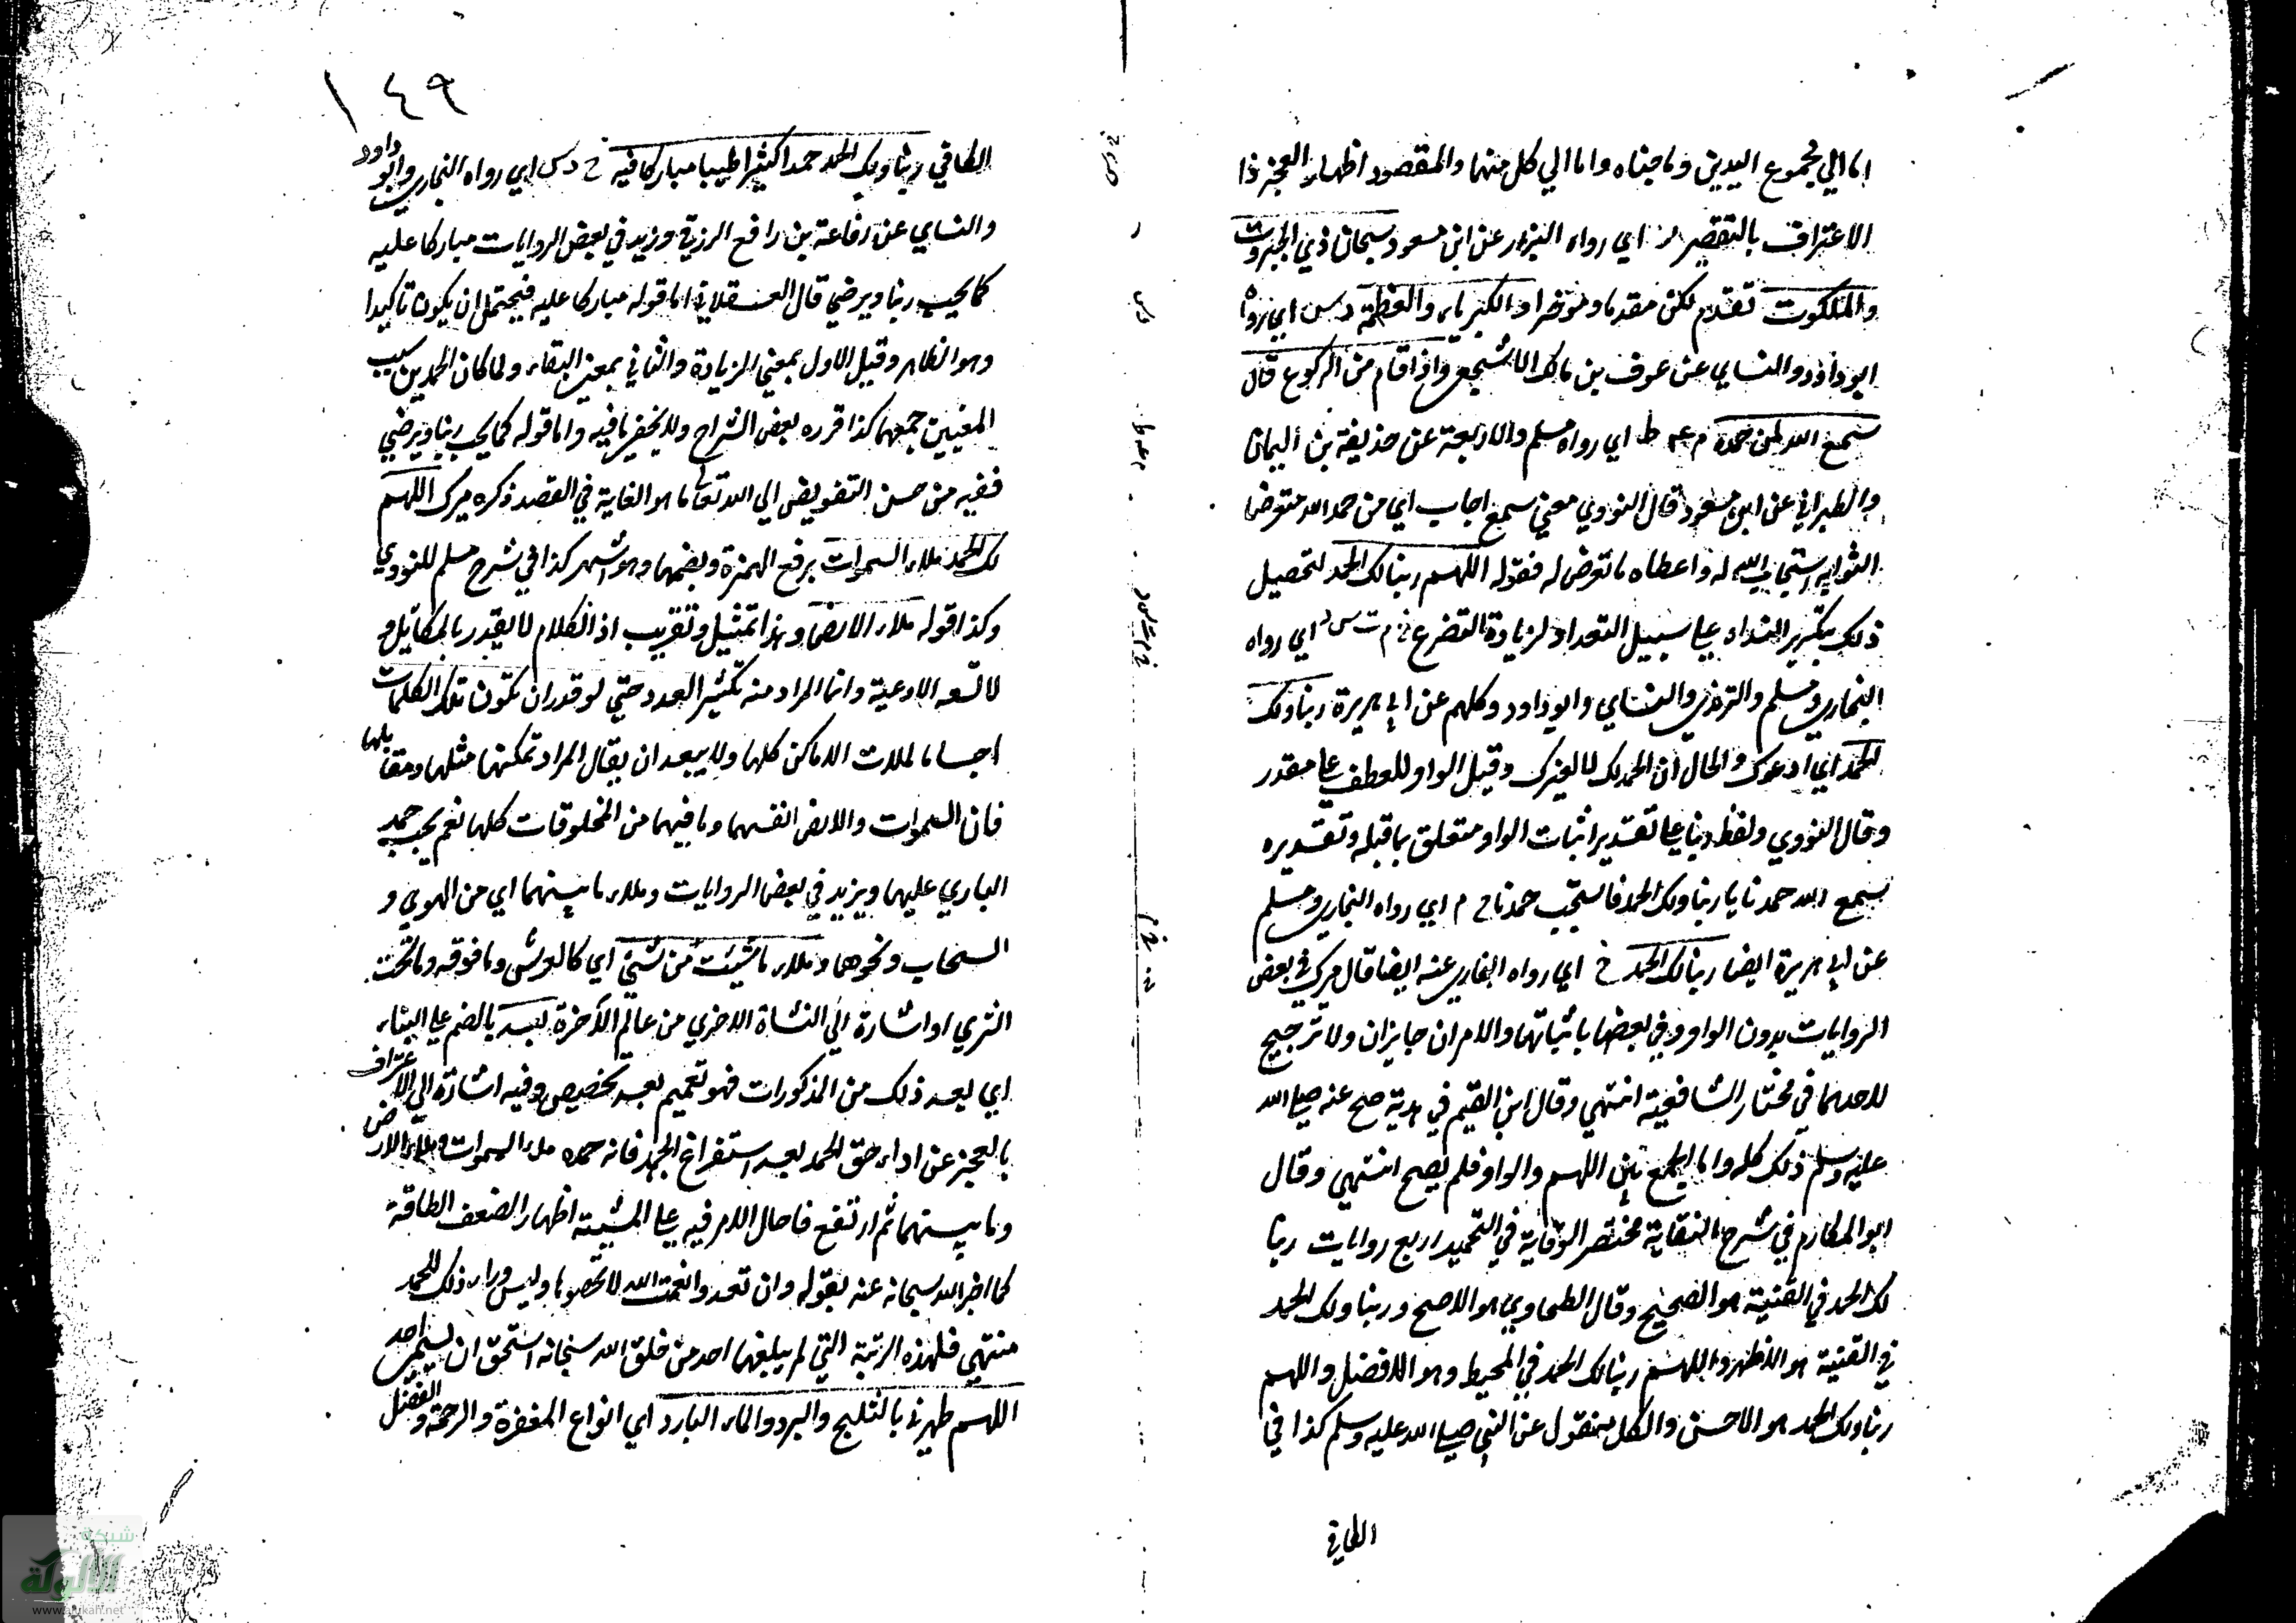 اما الي مجموع اليدين وما جناه واما الي كل منهما والمقصود اظهار العجز ذا
الاعتراف بالتقصير ر اي رواه البزار عن ابن مسعود سبحان ذي الجبروت
والملكوت تقدم لكن مقدما ومؤخرا والكبرياء والعظمة د س اي رواه
ابو داود والنساي عن عوف بن مالك الاشجعي واذا قام من الركوع قال
سمع الله لمن حمده م عه ط اي رواه مسلم والاربعة عن حذيفة بن اليمان
والطبراني عن ابن مسعود قال النووي معني سمع اجاب اي من حمد الله متعرضا
لثوابه استجاب الله له واعطاه ما تعرض له فقوله اللهم ربنا لك الحمد لتحصيل
ذلك بتكرير النداء علي سبيل التعداد لزيادة التضرع خ م ت س د اي رواه
البخاري ومسلم والترمذي والنساي وابو داود وكلهم عن ابي هريرة ربنا ولك
الحمد اي ادعوك والحال ان الحمد لك لا لغيرك وقيل الواو للعطف علي مقدر
وقال النووي ولفظ ربنا علي تقدير اثبات الواو متعلق بما قبله وتقديره
سمع الله حمدنا يا ربنا ولك الحمد فاستجب حمدنا خ م اي رواه البخاري ومسلم
عن ابي هريرة ايضا ربنا لك الحمد خ اي رواه البخاري عنه ايضا قال ميرك في بعض
الروايات بدون الواو وفي بعضها باثباتها والامران جايزان ولا ترجيح
لاحدهما في مختار الشافعية انتهي وقال ابن القيم في هدية صح عنه صلي الله
عليه وسلم ذلك كله واما الجمع بين اللهم والواو فلم يصح انتهي وقال
ابو المكارم في شرح النقاية مختصر الوقاية في التحميد اربع روايات ربنا
لك الحمد في القنية هو الصحيح وقال الطحاوي هو الاصح وربنا ولك الحمد
في القنية هو الاظهر واللهم ربنا لك الحمد في المحيط وهو الافضل واللهم
ربنا ولك الحمد هو الاحسن والكل منقول عن النبي صلي الله عليه وسلم كذا في
الكافي
١٤٩
الكافي ربنا ولك الحمد حمدا كثيرا طيبا مباركا فيه خ د س اي رواه البخاري وابو داود
والنساي عن رفاعة بن رافع الزرقي وزيد في بعض الروايات مباركا عليه
كما يحب ربنا ويرضي قال العسقلاني اما قوله مباركا عليه فيحتمل ان يكون تاكيدا
وهو الظاهر وقيل الاول بمعني الزيادة والثاني بمعني البقاء ولما كان الحمد يناسب
المعنيين جمعهما كذا قرره بعض الشراح ولا يخفي ما فيه واما قوله كما يحب ربنا ويرضي
ففيه من حسن التفويض الي الله تعالي ما هو الغاية في القصد ذكره ميرك اللهم
لك الحمد ملاء السموات برفع الهمزة وبضمها وهو اشهر كذا في شرح مسلم للنووي
وكذا قوله ملاء الارض وهذا تمثيل وتقريب اذ الكلام لا يقدر بالمكاييل و
لا تسعه الاوعية وانما المراد منه تكثير العدد حتي لو قدر ان تكون تلك الكلمات
اجساما لملات الاماكن كلها ولا يبعد ان يقال المراد تمكنها مثلها ومقابلها
فان السموات والارض انفسهما وما فيهما من المخلوقات كلها نعم يجب حمد
الباري عليها ويزيد في بعض الروايات وملاء ما بينهما اي من الهوي و
السحاب ونحوهما وملاء ما شئت من شئ اي كالعرش وما فوقه وما تحت
الثري او اشارة الي النشاة الاخري من عالم الآخرة بعد بالضم علي البناء
اي بعد ذلك من المذكورات فهو تعميم بعد تخصيص وفيه اشارة الي الاعتراف
بالعجز عن اداء حق الحمد بعد استفراغ الجهد فانه حمده ملاء السموات وملاء الارض
وما بينهما ثم ارتفع فاحال الامر فيه علي المشية اظهار الضعف الطاقة
كما اخبر الله سبحانه عنه بقوله وان تعدوا نعمت الله لا تحصوها وليس وراء ذلك للحمد
منتهي فلهذه الرتبة التي لم يبلغها احد من خلق الله سبحانه استحق ان يسمي احمد
اللهم طهرني بالثلج والبرد والماء البارد اي انواع المغفرة والرحمة والفضل
شبكة
الألوكة
www.alukah.net